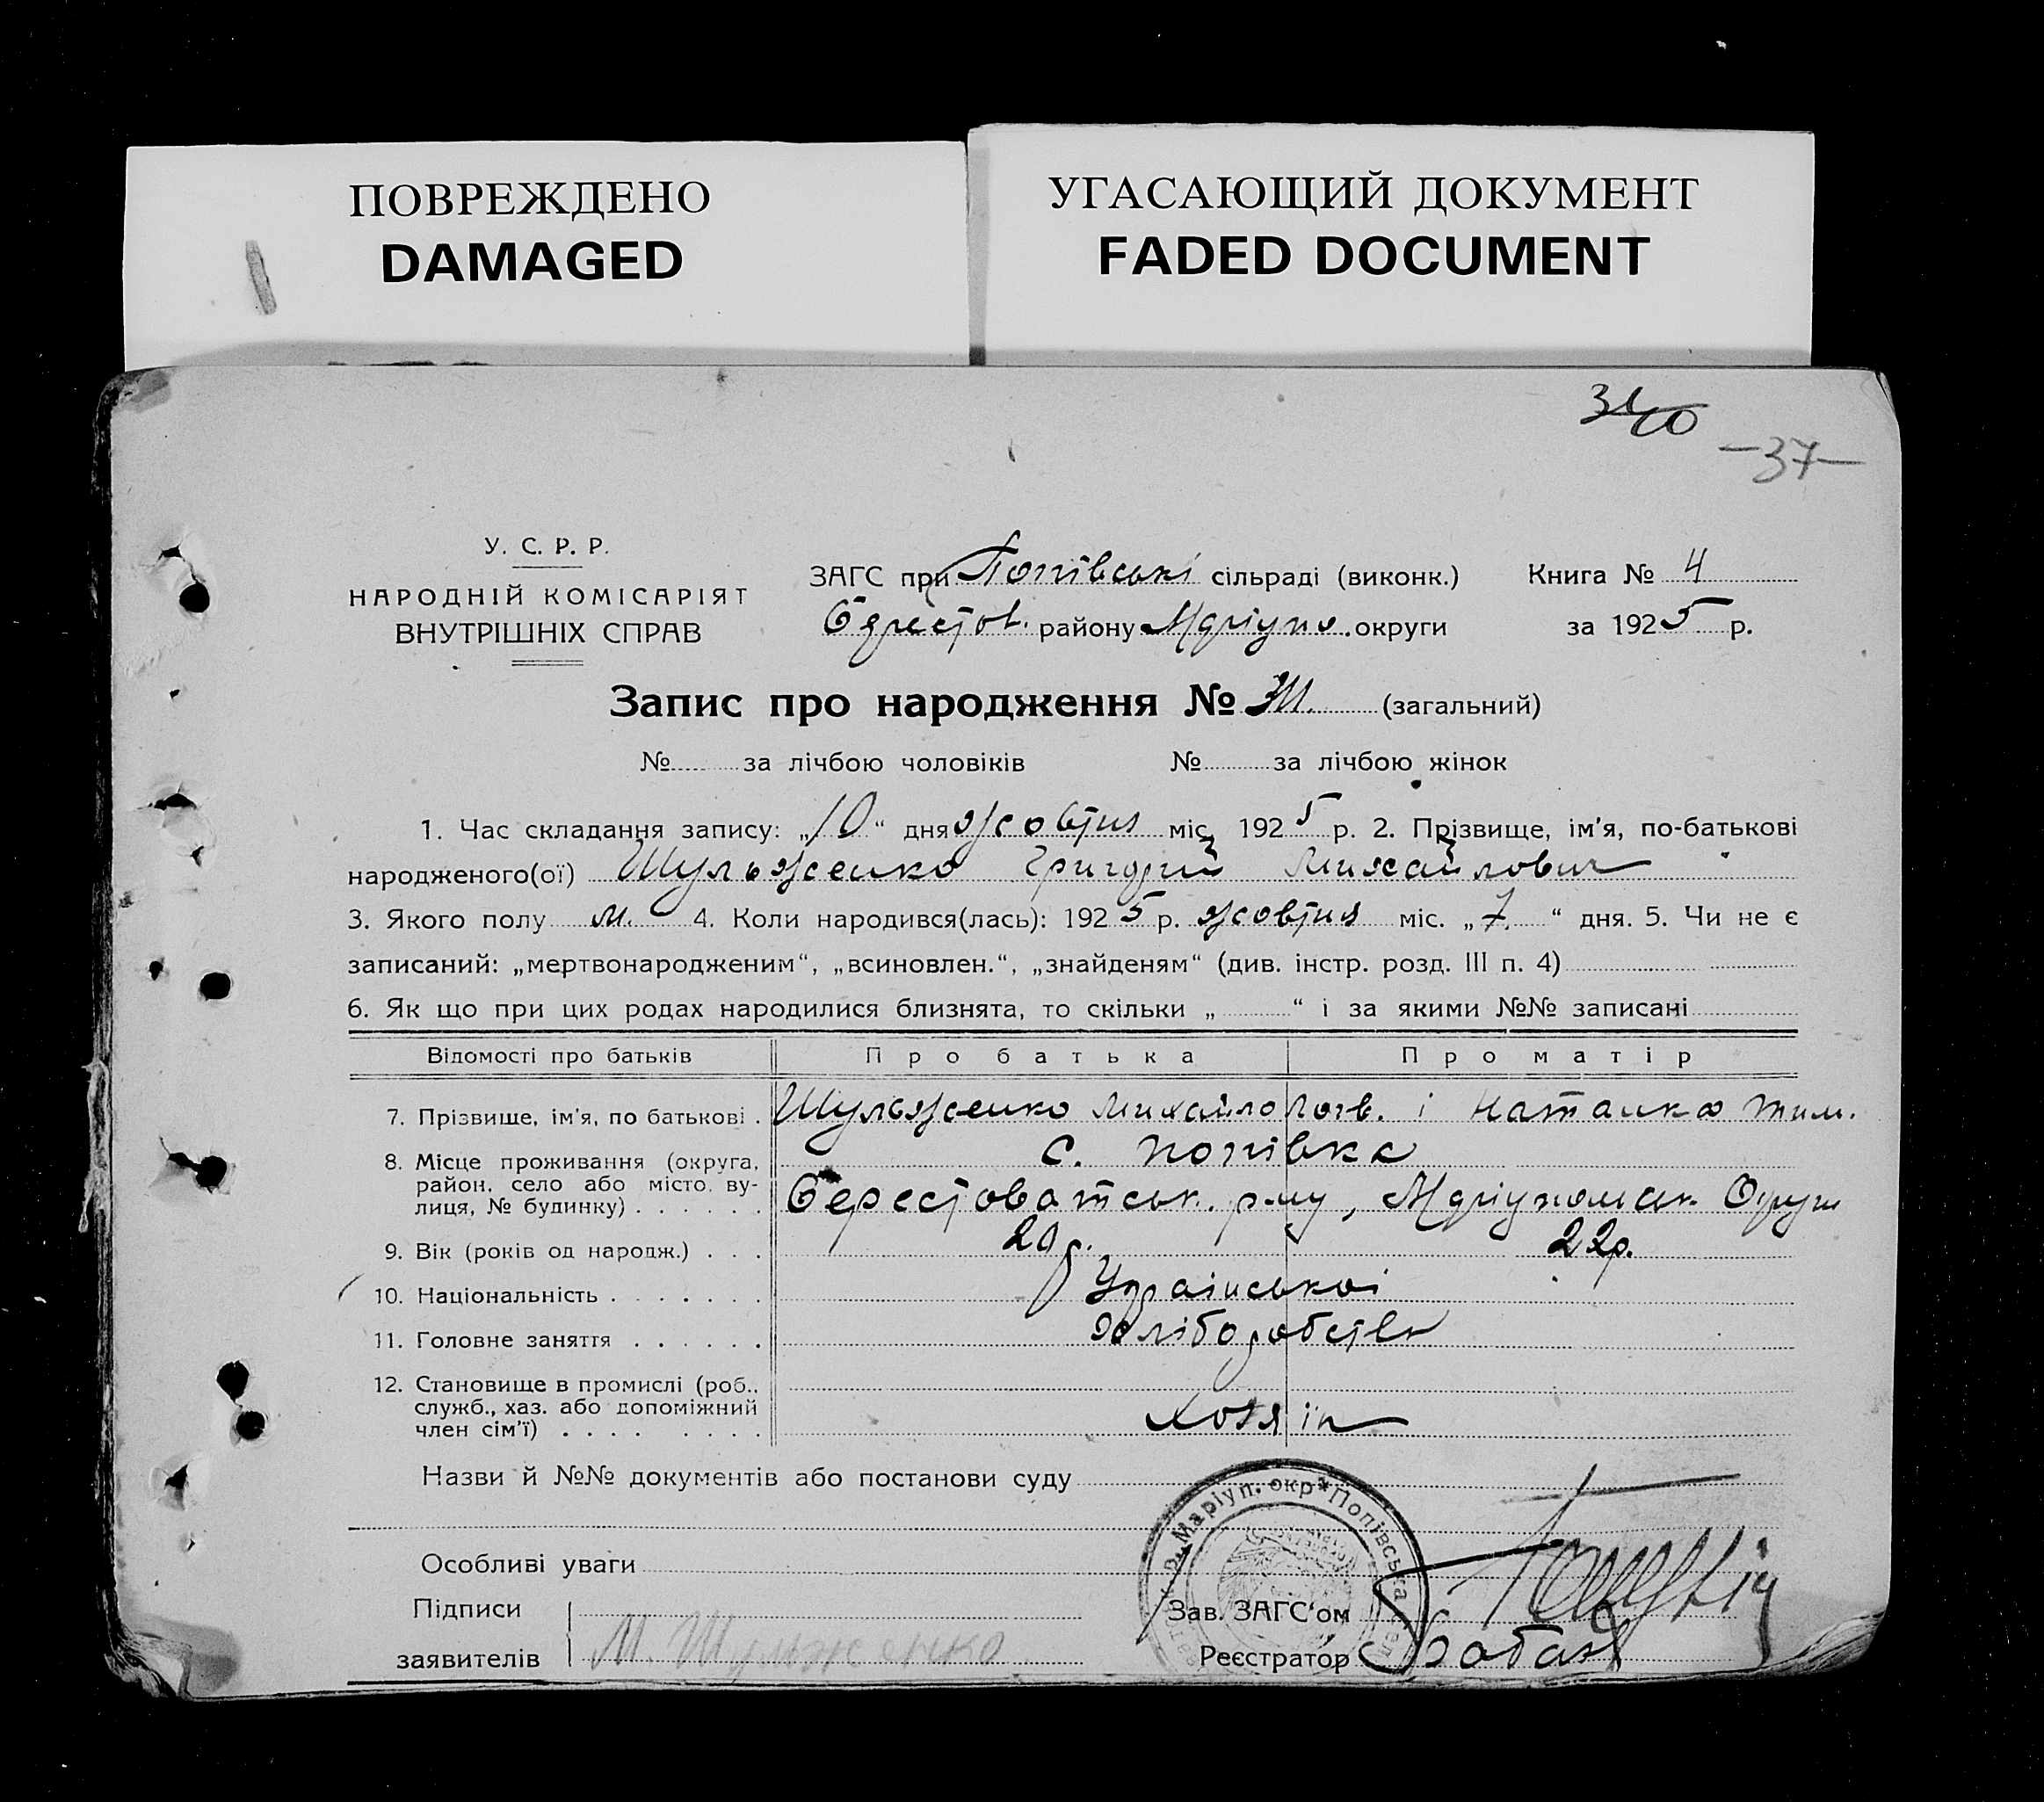 ПОВРЕЖДЕНО
DAMAGED
УГАСАЮЩИЙ ДОКУМЕНТ
FADED DOCUMENT
-37-
У. С. Р. Р.
НАРОДНІЙ КОМІСАРІЯТ
ВНУТРІШНІХ СПРАВ
ЗАГС при Попівські сільраді (виконк.)
Берестов. району Маріуп. округи
Книга № 4
за 1925 р.
Запис про народження № (загальний)
№ за лічбою чоловіків № за лічбою жінок
1. Час складання запису: „10“ дня жовтня міс. 1925 р. 2. Прізвище, ім'я, по-батькові
народженого(ої) Шульженко Григорій Михайлович
3. Якого полу м. 4. Коли народився(лась): 1925 р. жовтня міс. „7.“ дня. 5. Чи не є
записаний: „мертвонародженим“, „всиновлен.“, „знайденям“ (див. інстр. розд. III п. 4)
6. Як що при цих родах народилися близнята, то скільки „ “ і за якими №№ записані
Відомості про батьків Про батька Про матір
7. Прізвище, ім'я, по батькові . Шульженко Михайло Логв. і Наталка Тим.
8. Місце проживання (округа, с. Попівка
район, село або місто, ву-
лиця, № будинку) . . . . . . Берестоватськ. р-ну, Маріупольськ Округи
9. Вік (років од народж.) . . . 20 р. 22 р.
10. Національність . . . . . . . Української
11. Головне заняття . . . . . . Хліборобство
12. Становище в промислі (роб.,
служб., хаз. або допоміжний
член сім'ї) . . . . . . . . Хозяїн
Назви й №№ документів або постанови суду
Маріуп. окр * Попівська
Особливі уваги
Підписи
заявителів М. Шульженко
Зав. ЗАГС'ом
Реєстратор